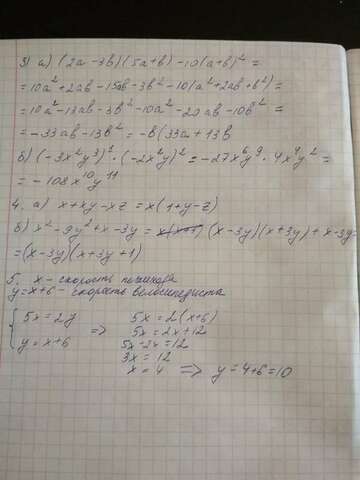 3) а) (2a-3b)(5a+b)-10(a+b)² =
= 10a²+2ab-15ab-3b²-10(a²+2ab+b²) =
= 10a²-13ab-3b²-10a²-20ab-10b² =
= -33ab-13b² = -b(33a+13b
б) (-3x²y³)³·(-2x²y)² = -27x⁶y⁹·4x⁴y² =
= -108x¹⁰y¹¹
4. а) x+xy-xz = x(1+y-z)
б) x²-9y²+x-3y = (x-3y)(x+3y)+x-3y=
=(x-3y)(x+3y+1)
5. x - скорость пешехода
y=x+6 - скорость велосипедиста
5x=2y => 5x=2(x+6)
y=x+6 5x=2x+12
5x-2x=12
3x=12
x=4 => y=4+6=10